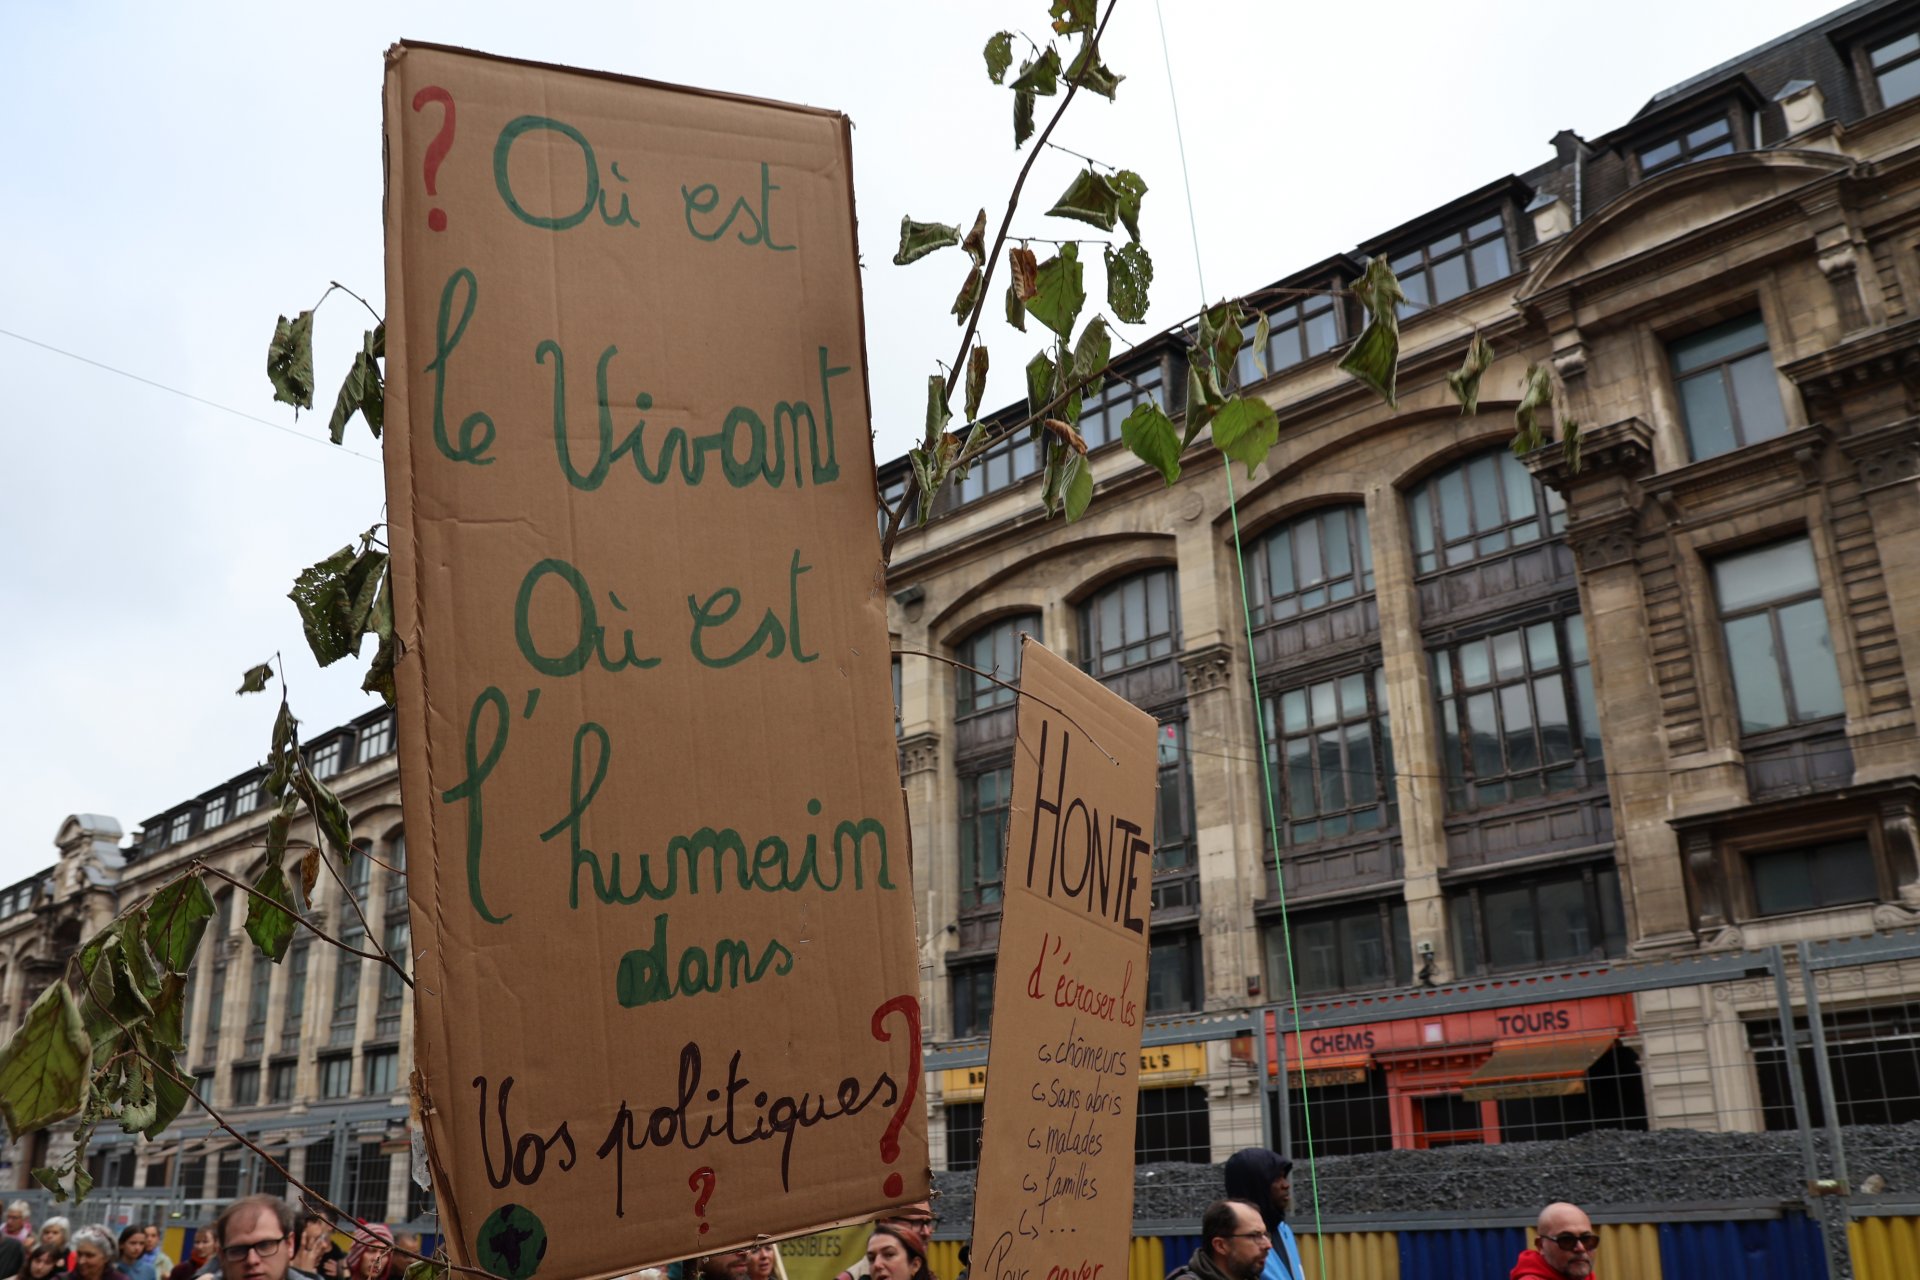 ? Où est
le Vivant
Où est
l'humain
dans
Vos politiques ?
?
HONTE
d'écraser les
↪ chômeurs
↪ Sans abris
↪ malades
↪ familles
↪ ...
Pour payer
CHEMS TOURS
EL'S
SSIBLES